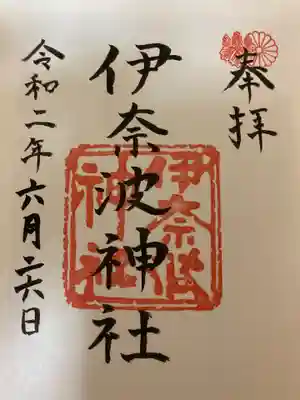 奉拝
伊奈波神社
伊奈波
神社
令和二年六月二六日